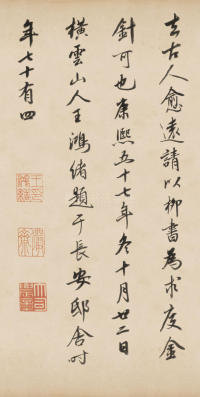 去古人愈遠請以柳書為求度金
針可也康熙五十七年冬十月廿二日
橫雲山人王鴻緒題于長安邸舍時
年七十有四